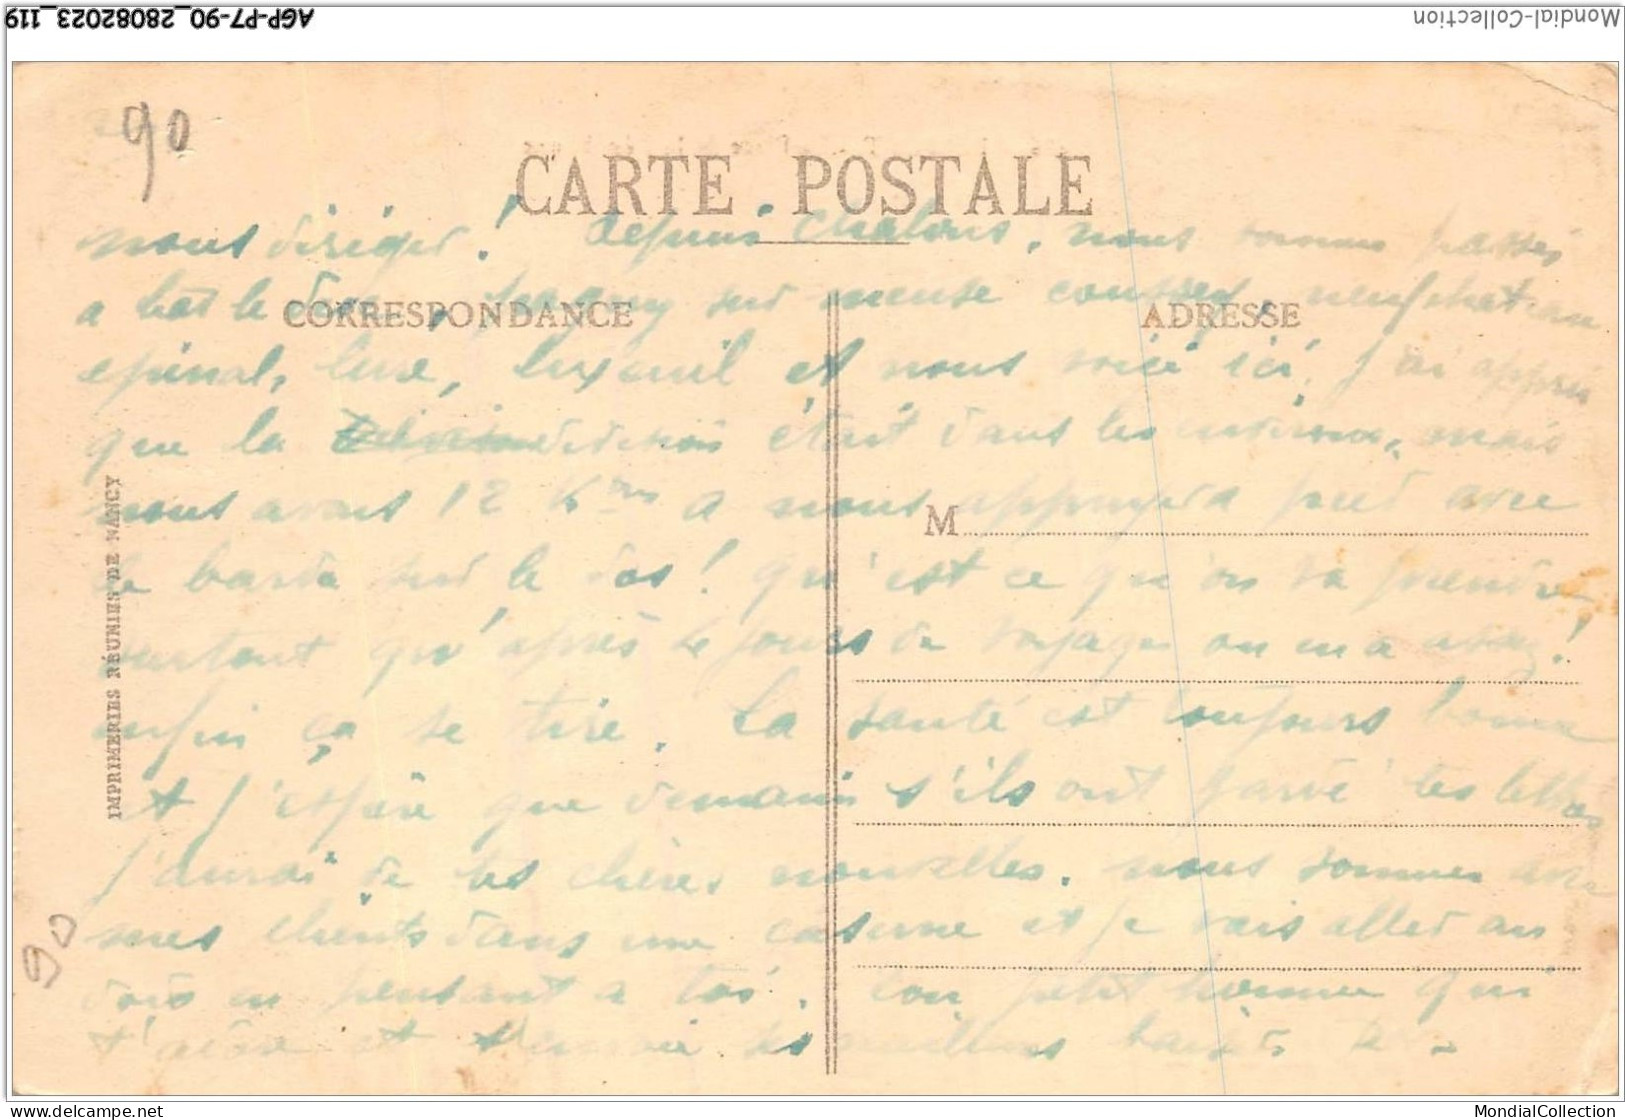 AGP-P7-90_28082023_119
Mondial-Collection
90
CARTE POSTALE
nous diriger! depuis chalons, nous sommes passés
a bar le duc, sur meuse coussey, neufchateau
CORRESPONDANCE
ADRESSE
epinal, lure, luxeuil et nous voici ici, j'ai appris
que la division était dans les environs, mais
nous avons 12 Kms a nous appuyer a pied avec
M
le barda sur le dos! qu'est ce qu'on va prendre
surtout qu'après de jours de voyages on en a assez!
enfin ça se tire. La santé est toujours bonne
et j'espère que demain s'ils ont gardé les lettres
j'aurai de tes chères nouvelles. nous sommes avec
mes clients dans une caserne et je vais aller au
90
dodo en pensant a toi. ton petit homme qui
t'adore et t'envoie ses meilleurs baisers
IMPRIMERIES RÉUNIES DE NANCY
www.delcampe.net
MondialCollection